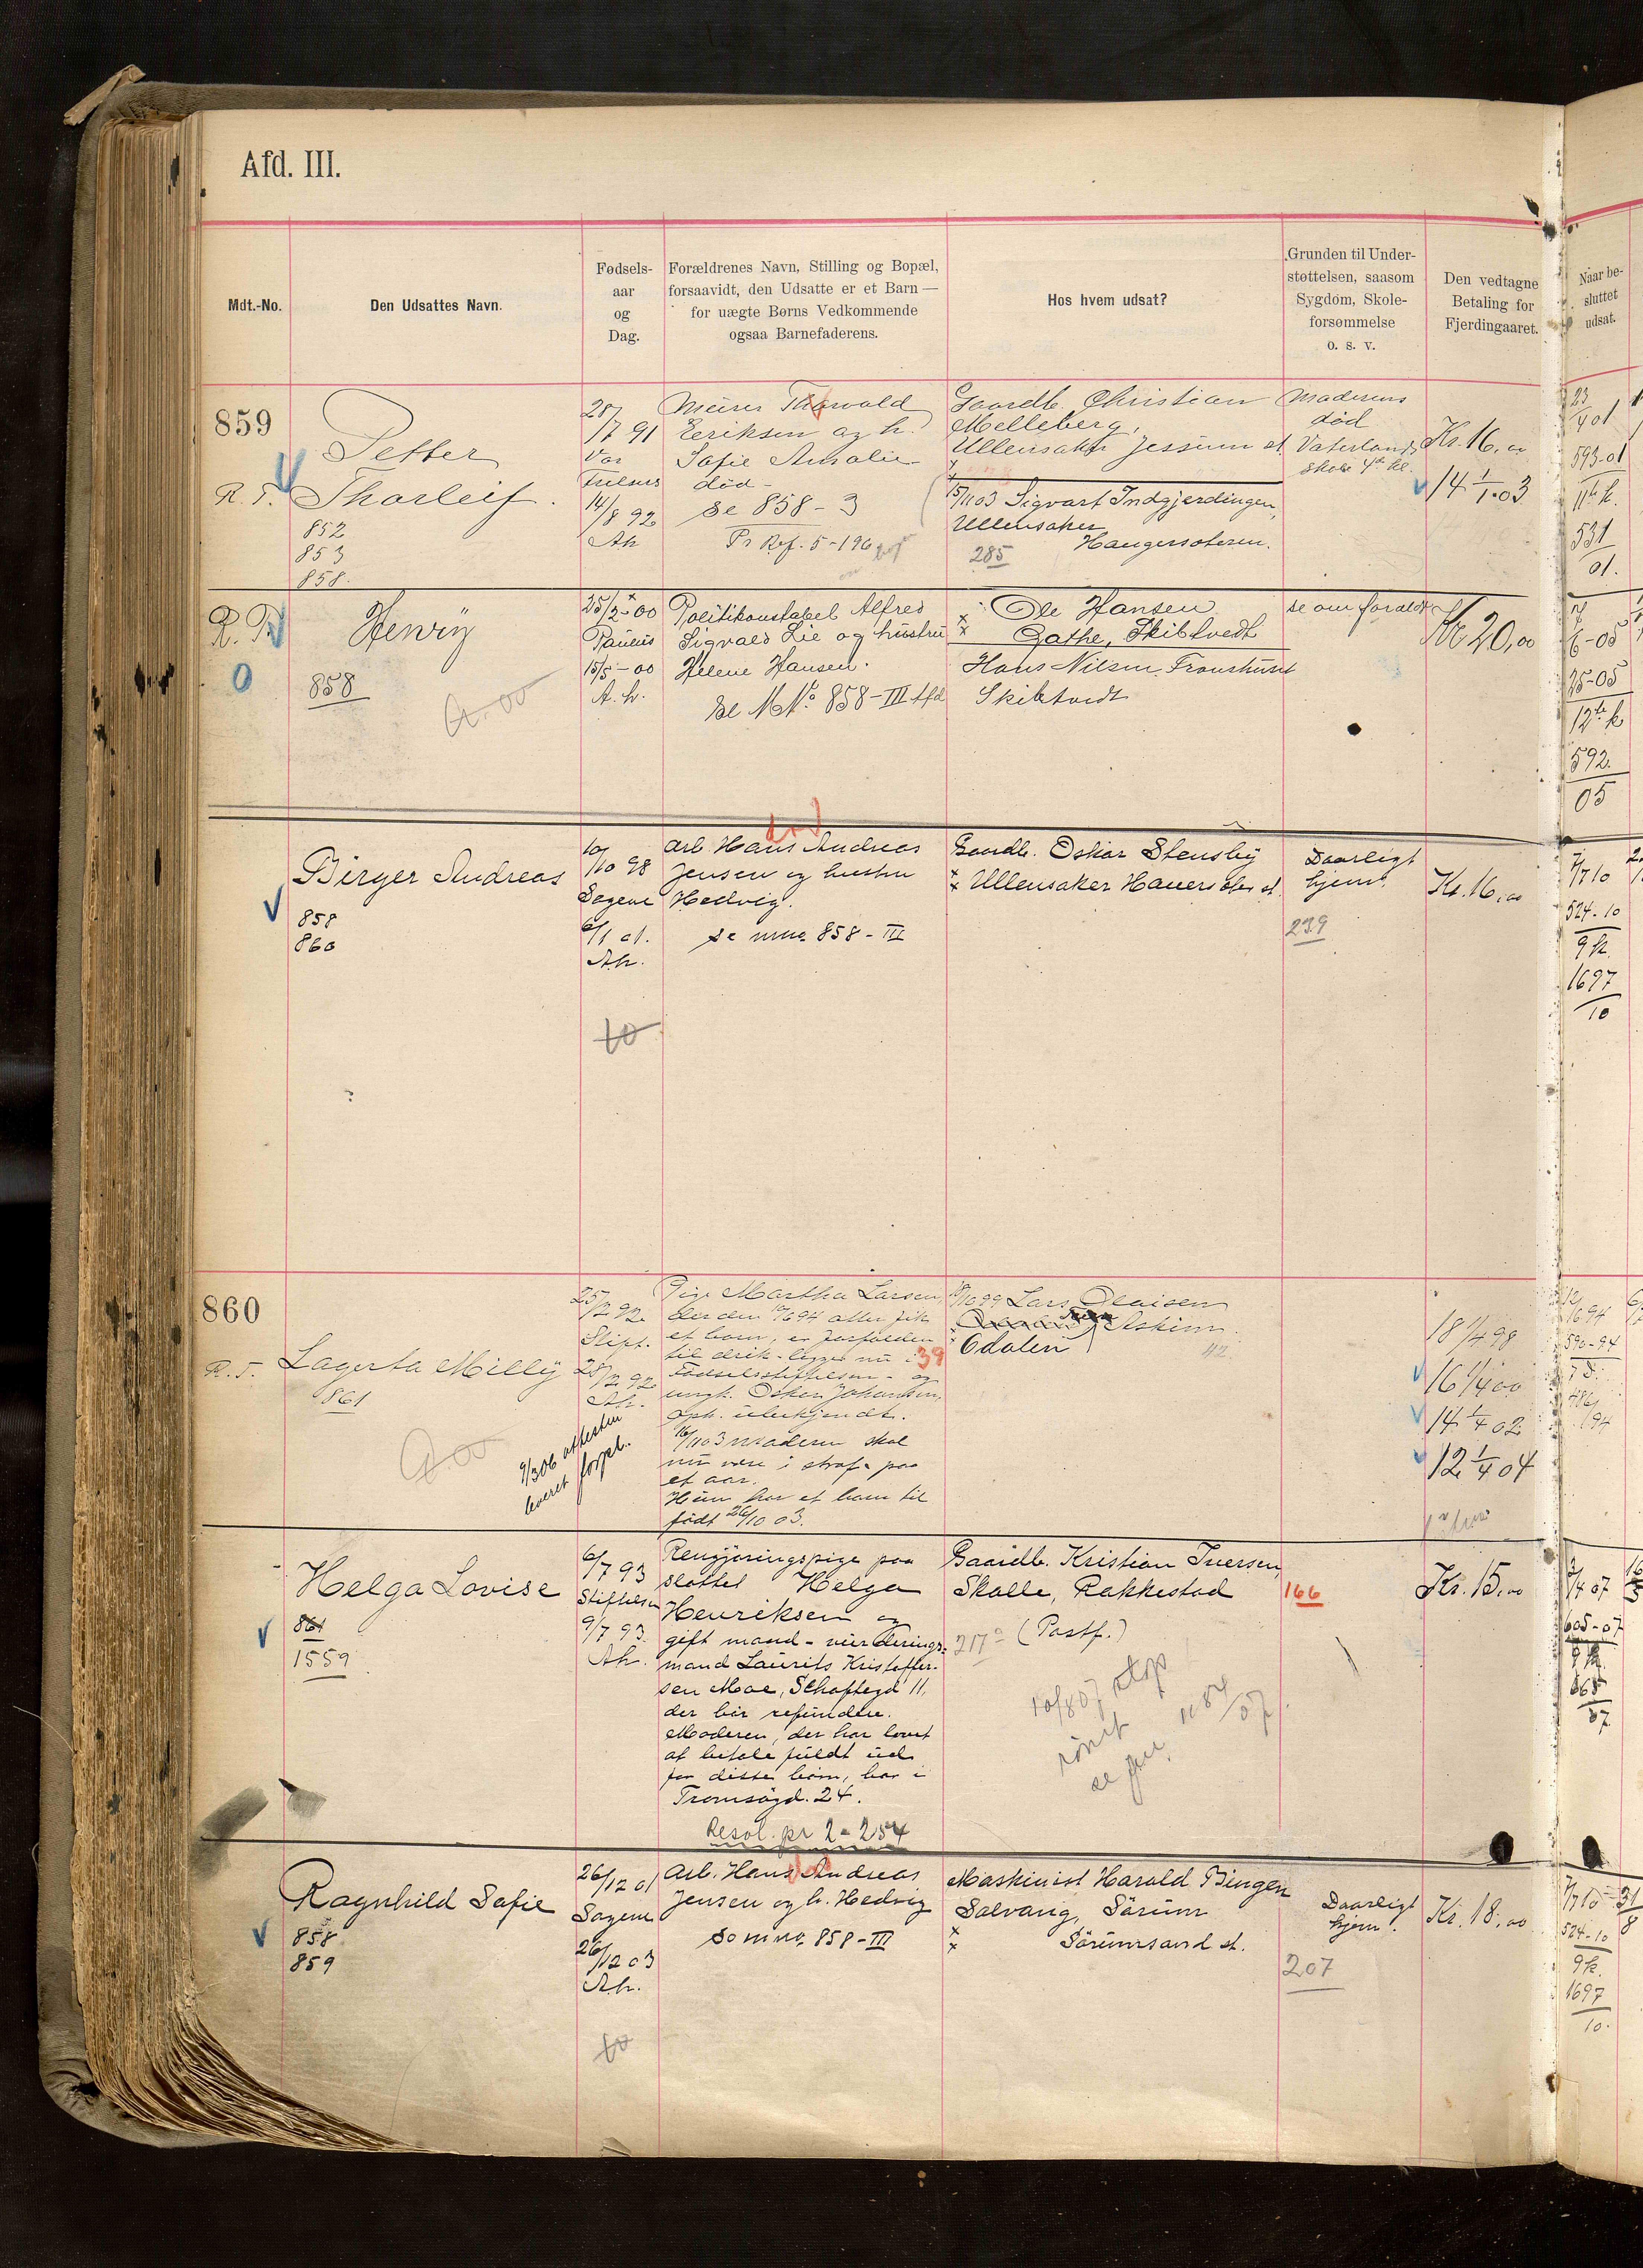 Afd. III.
Mdt.-No.
Den Udsattes Navn.
Fødsels-
aar
og
Dag.
Forældrenes Navn, Stilling og Bopæl,
forsaavidt, den Udsatte er et Barn —
for uægte Børns Vedkommende
ogsaa Barnefaderens.
Hos hvem udsat?
Grunden til Under-
støttelsen, saasom
Sygdom, Skole-
forsømmelse
o. s. v.
Den vedtagne
Betaling for
Fjerdingaaret.
Naar be-
sluttet
udsat.
859
Petter
R. T. Thorleif.
852
853
858.
28/7 91
Vor
Frelsers
14/8 92
Ah
Murer Thorvald
Eeriksen og h.
Sofie Amalie
død
Se 858 - 3
Pr Ref. 5-196
Gaardb. Christian
Melleberg,
Ullensaker Jessum st
15/11 03 Sigvart Indgjerdingen,
Ullensaker
Haugersæteren.
285
Moderens
død
Vaterlands
skole 4de kl.
Kr. 16,00
14 1/1.03
23/4 01
593-01
11te k.
531
01.
Henry
858
25/2-00
Paulus
15/5-00
A. h.
Politikonstabel Alfred
Sigvald Lie og hustru
Helene Hansen.
Se M No. 858-III Afd
Ole Hansen
Gathe, Skibtvedt
Hans Nilsen. Fronshuset
Skibtvedt
se om foraldr
Kr 20,00
6-05
75-05
12te k
592.
05
Birger Andreas
858
860
10/10 98
Sagene
6/1 01.
Ah.
to
død
Arb. Hans Andreas
Jensen og hustru
Hedvig.
se mno. 858-III
Gaardb. Oskar Stensby
Ullensaker Hauersæter st.
Daarligt
hjem.
239
Kr. 16,00
7/7 10
524-10
9 k.
1697
10
860
R. T. Lagerta Milly
861
25/2 92
Stift.
28/2 92
Ah.
9/3 06 attesten
leveret forpl.
Pige Martha Larsen,
der den 19/6 94 atter fik
et barn, er forfalden
til drik - ligger nu i
39
Fødselsstiftelsen - og
ungk. Oskar Johansen,
oph. ubekjendt.
16/11 03 moderen skal
nu være i straf paa
et aar.
Hun har et barn til
født 26/10 03.
Lars Olaisen
Askim.
Odalen
42
18 1/4 98
16 1/4 00
14 1/4 02
12 1/4 04
590-94
Helga Lovise
861
1559
6/7 93
Stiftelsen
9/7 93.
Ah.
Rengjøringspige paa
slottet Helga
Henriksen og
gift mand -
mand Laurits Kristoffer-
sen Moe, Schaftegd 11,
der bør refundere.
Moderen, der har lovet
at betale fuldt ud
for dette barn, bor i
Tromsøgd. 24.
Resol. pr 2-254
Gaardb. Kristian Iversen,
Skalle, Rakkestad
(Postf.)
217
166
Kr. 15,00
3/4 07
605-07
Ragnhild Sofie
858
859
26/12 01
Sagene
26/12 03
Ah.
to
død
Arb. Hans Andreas
Jensen og h. Hedvig
Se mno. 858-III
Maskinist Harald Bingen
Solvang, Sørum
Sørumsand st.
207
Daarligt
hjem.
Kr. 18,00
7/7 10
524-10
9 k.
1697
10.